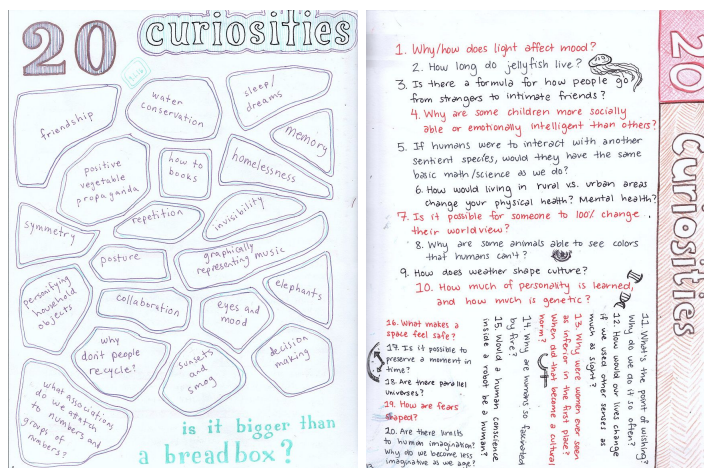 20 curiosities
friendship
water
conservation
sleep/
dreams
memory
positive
vegetable
propaganda
how to
books
homelessness
symmetry
repetition
invisibility
posture
graphically
representing music
personifying
household
objects
collaboration
eyes and
mood
elephants
why
don't people
recycle?
sunsets
and
smog
decision
making
what associations
do we attatch
to numbers and
groups of
numbers?
is it bigger than
a breadbox?
20 curiosities
1. Why/how does light affect mood?
2. How long do jellyfish live?
3. Is there a formula for how people go
from strangers to intimate friends?
4. Why are some children more socially
able or emotionally intelligent than others?
5. If humans were to interact with another
sentient species, would they have the same
basic math/science as we do?
6. How would living in rural vs. urban areas
change your physical health? Mental health?
7. Is it possible for someone to 100% change
their worldview?
8. Why are some animals able to see colors
that humans can't?
9. How does weather shape culture?
10. How much of personality is learned,
and how much is genetic?
11. What's the point of wishing?
Why do we do it so often?
12. How would our lives change
if we used other senses as
much as sight?
13. Why were women ever seen
as inferior in the first place?
When did that become a cultural
norm?
14. Why are humans so fascinated
by fire?
15. Would a human conscience
inside a robot be a human?
16. What makes a
space feel safe?
17. Is it possible to
preserve a moment in
time?
18. Are there parallel
universes?
19. How are fears
shaped?
20. Are there limits
to human imagination?
Why do we become less
imaginative as we age?